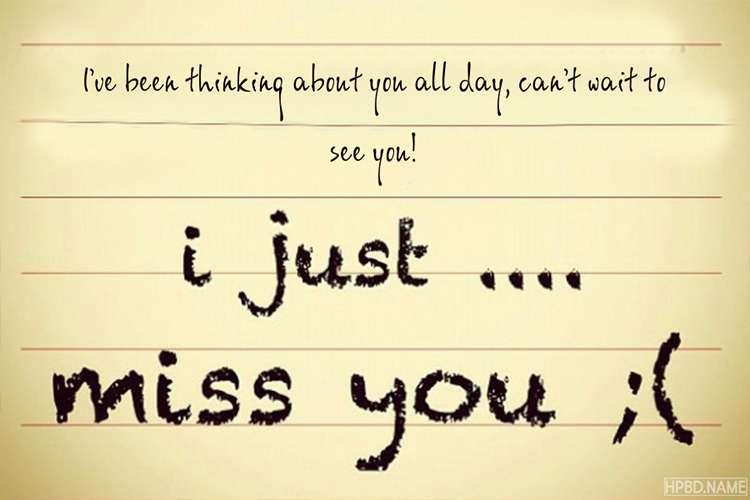 I've been thinking about you all day, can't wait to
see you!
i just ....
miss you ;(
HPBD.NAME